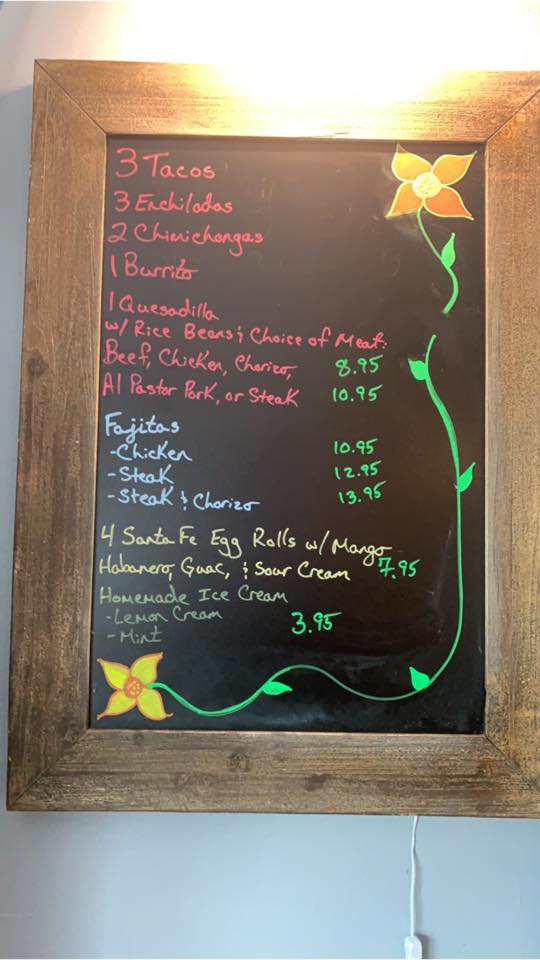 3 Tacos
3 Enchiladas
2 Chimichangas
1 Burrito
1 Quesadilla
w/ Rice Beans & Choice of Meat:
Beef, Chicken, Chorizo, 8.95
Al Pastor Pork, or Steak 10.95
Fajitas
-Chicken 10.95
-Steak 12.95
-Steak & Chorizo 13.95
4 Santa Fe Egg Rolls w/ Mango
Habanero, Guac, & Sour Cream 7.95
Homemade Ice Cream
-Lemon Cream 3.95
-Mint